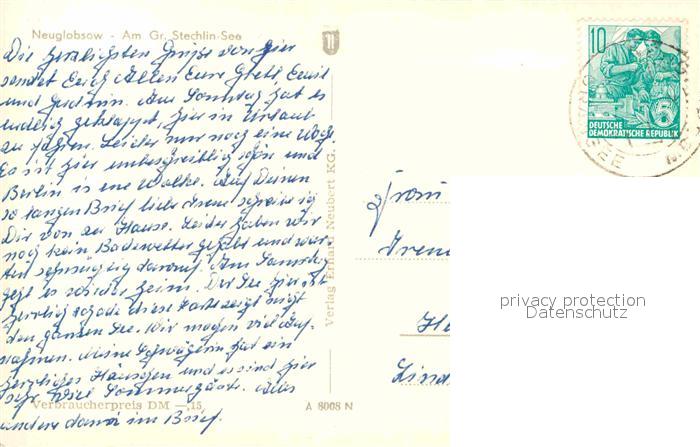 Neuglobsow - Am Gr. Stechlin-See
Die herzlichsten Grüße von hier
sendet Euch Allen Eure Gretl Emil
und Gudrun. Am Sonntag hat es
endlich geklappt, hier in Urlaub
zu fahren. Leider nur noch eine Woche
Es ist hier unbeschreiblich schön und
Berlin is ene Wolke. Auf Deinen
so langen Brief liebe Irene schreibe ich
Dir von zu Hause. Leider haben wir
noch kein Badewetter gehabt und war-
ten sehnsüchtig darauf. Am Samstag
geht es wieder heim. Der See hier ist
herrlich schade diese Karte zeigt nicht
den ganzen See. Wir machen viel Auf-
nahmen. Meine Schwägerin hat ein
herzliches Häuschen und es sind hier
sehr viel Sommergäste. Alles
andere dann im Brief.
Verbraucherpreis DM -,15
A 8008 N
Verlag Erhard Neubert KG.
10
DEUTSCHE
DEMOKRATISCHE REPUBLIK
5
Frau
Irene
privacy protection
Datenschutz